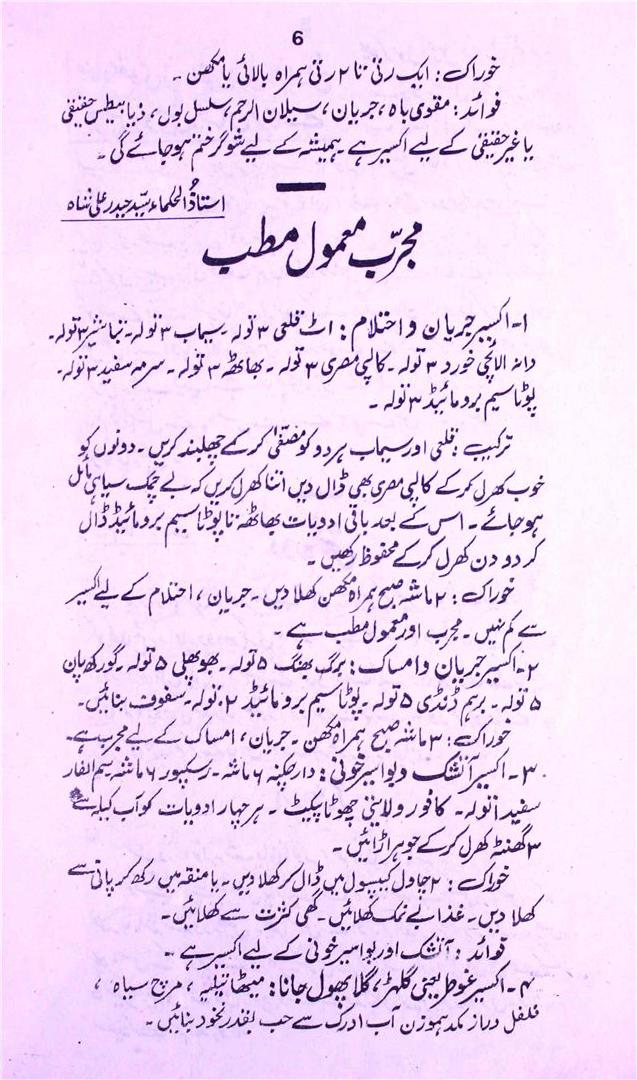 6
خوراک: ایک رتی تا ۲ رتی ہمراہ بالائی یا مکھن ۔
فوائد: مقوی باہ، جریان، سیلان الرحم، سلسل بول، ذیابیطس حقیقی
یا غیر حقیقی کے لیے اکسیر ہے۔ ہمیشہ کے لیے شوگر ختم ہو جائے گی ۔
استاذُ الحکماء سیّد حیدر علی شاہ
مجرّب معمول مطب
۱- اکسیر جریان و احتلام: قلعی ۳ تولہ ۔ سیماب ۳ تولہ ۔ تباشیر ۳ تولہ ۔
دانہ الائچی خورد ۳ تولہ ۔ کالپی مصری ۳ تولہ ۔ پھاٹھہ ۳ تولہ ۔ سرمہ سفید ۳ تولہ ۔
پوٹاسیم برومائیڈ ۳ تولہ ۔
ترکیب: قلعی اور سیماب ہر دو کو مصفیٰ کر کے کریں ۔ دونوں کو
خوب کھرل کر کے کالپی مصری بھی ڈال دیں اتنا کھرل کریں کہ بے چمک سیاہی مائل
ہو جائے ۔ اس کے بعد باقی ادویات پھاٹھہ تا پوٹاسیم برومائیڈ ڈال
کر دو دن کھرل کر کے محفوظ رکھیں ۔
خوراک: ۲ ماشہ صبح ہمراہ مکھن کھلا دیں ۔ جریان، احتلام کے لیے اکسیر
سے کم نہیں ۔ مجرب اور معمول مطب ہے ۔
۲- اکسیر جریان و امساک: برگ بھنگ ۵ تولہ ۔ بھوپھلی ۵ تولہ ۔ گورکھ پان
۵ تولہ ۔ برہم ڈنڈی ۵ تولہ ۔ پوٹاسیم برومائیڈ ۲ تولہ ۔ سفوف بنائیں ۔
خوراک: ۳ ماشہ صبح ہمراہ مکھن ۔ جریان، امساک کے لیے مجرب ہے ۔
۳- اکسیر آتشک و بواسیر خونی: دارچکنہ ۶ ماشہ ۔ رسکپور ۶ ماشہ ۔ سم الفار
سفید ۱ تولہ ۔ کافور ولایتی چھوٹا پیکٹ ۔ ہر چہار ادویات کو آب کیلہ سے
۳ گھنٹہ کھرل کر کے جوہر اڑائیں ۔
خوراک: ۲ چاول کیپسول میں ڈال کر کھلا دیں ۔ یا منقہ میں رکھ کر پانی سے
کھلا دیں ۔ غذا بے نمک کھلائیں ۔ گھی کثرت سے کھلائیں ۔
فوائد: آتشک اور بواسیر خونی کے لیے اکسیر ہے ۔
۴- اکسیر غوطر یعنی گلہڑ، گلا پھول جانا: میٹھا تیلیہ، مرچ سیاہ،
فلفل دراز ہموزن آب ادرک سے حب بقدر نخود بنائیں ۔